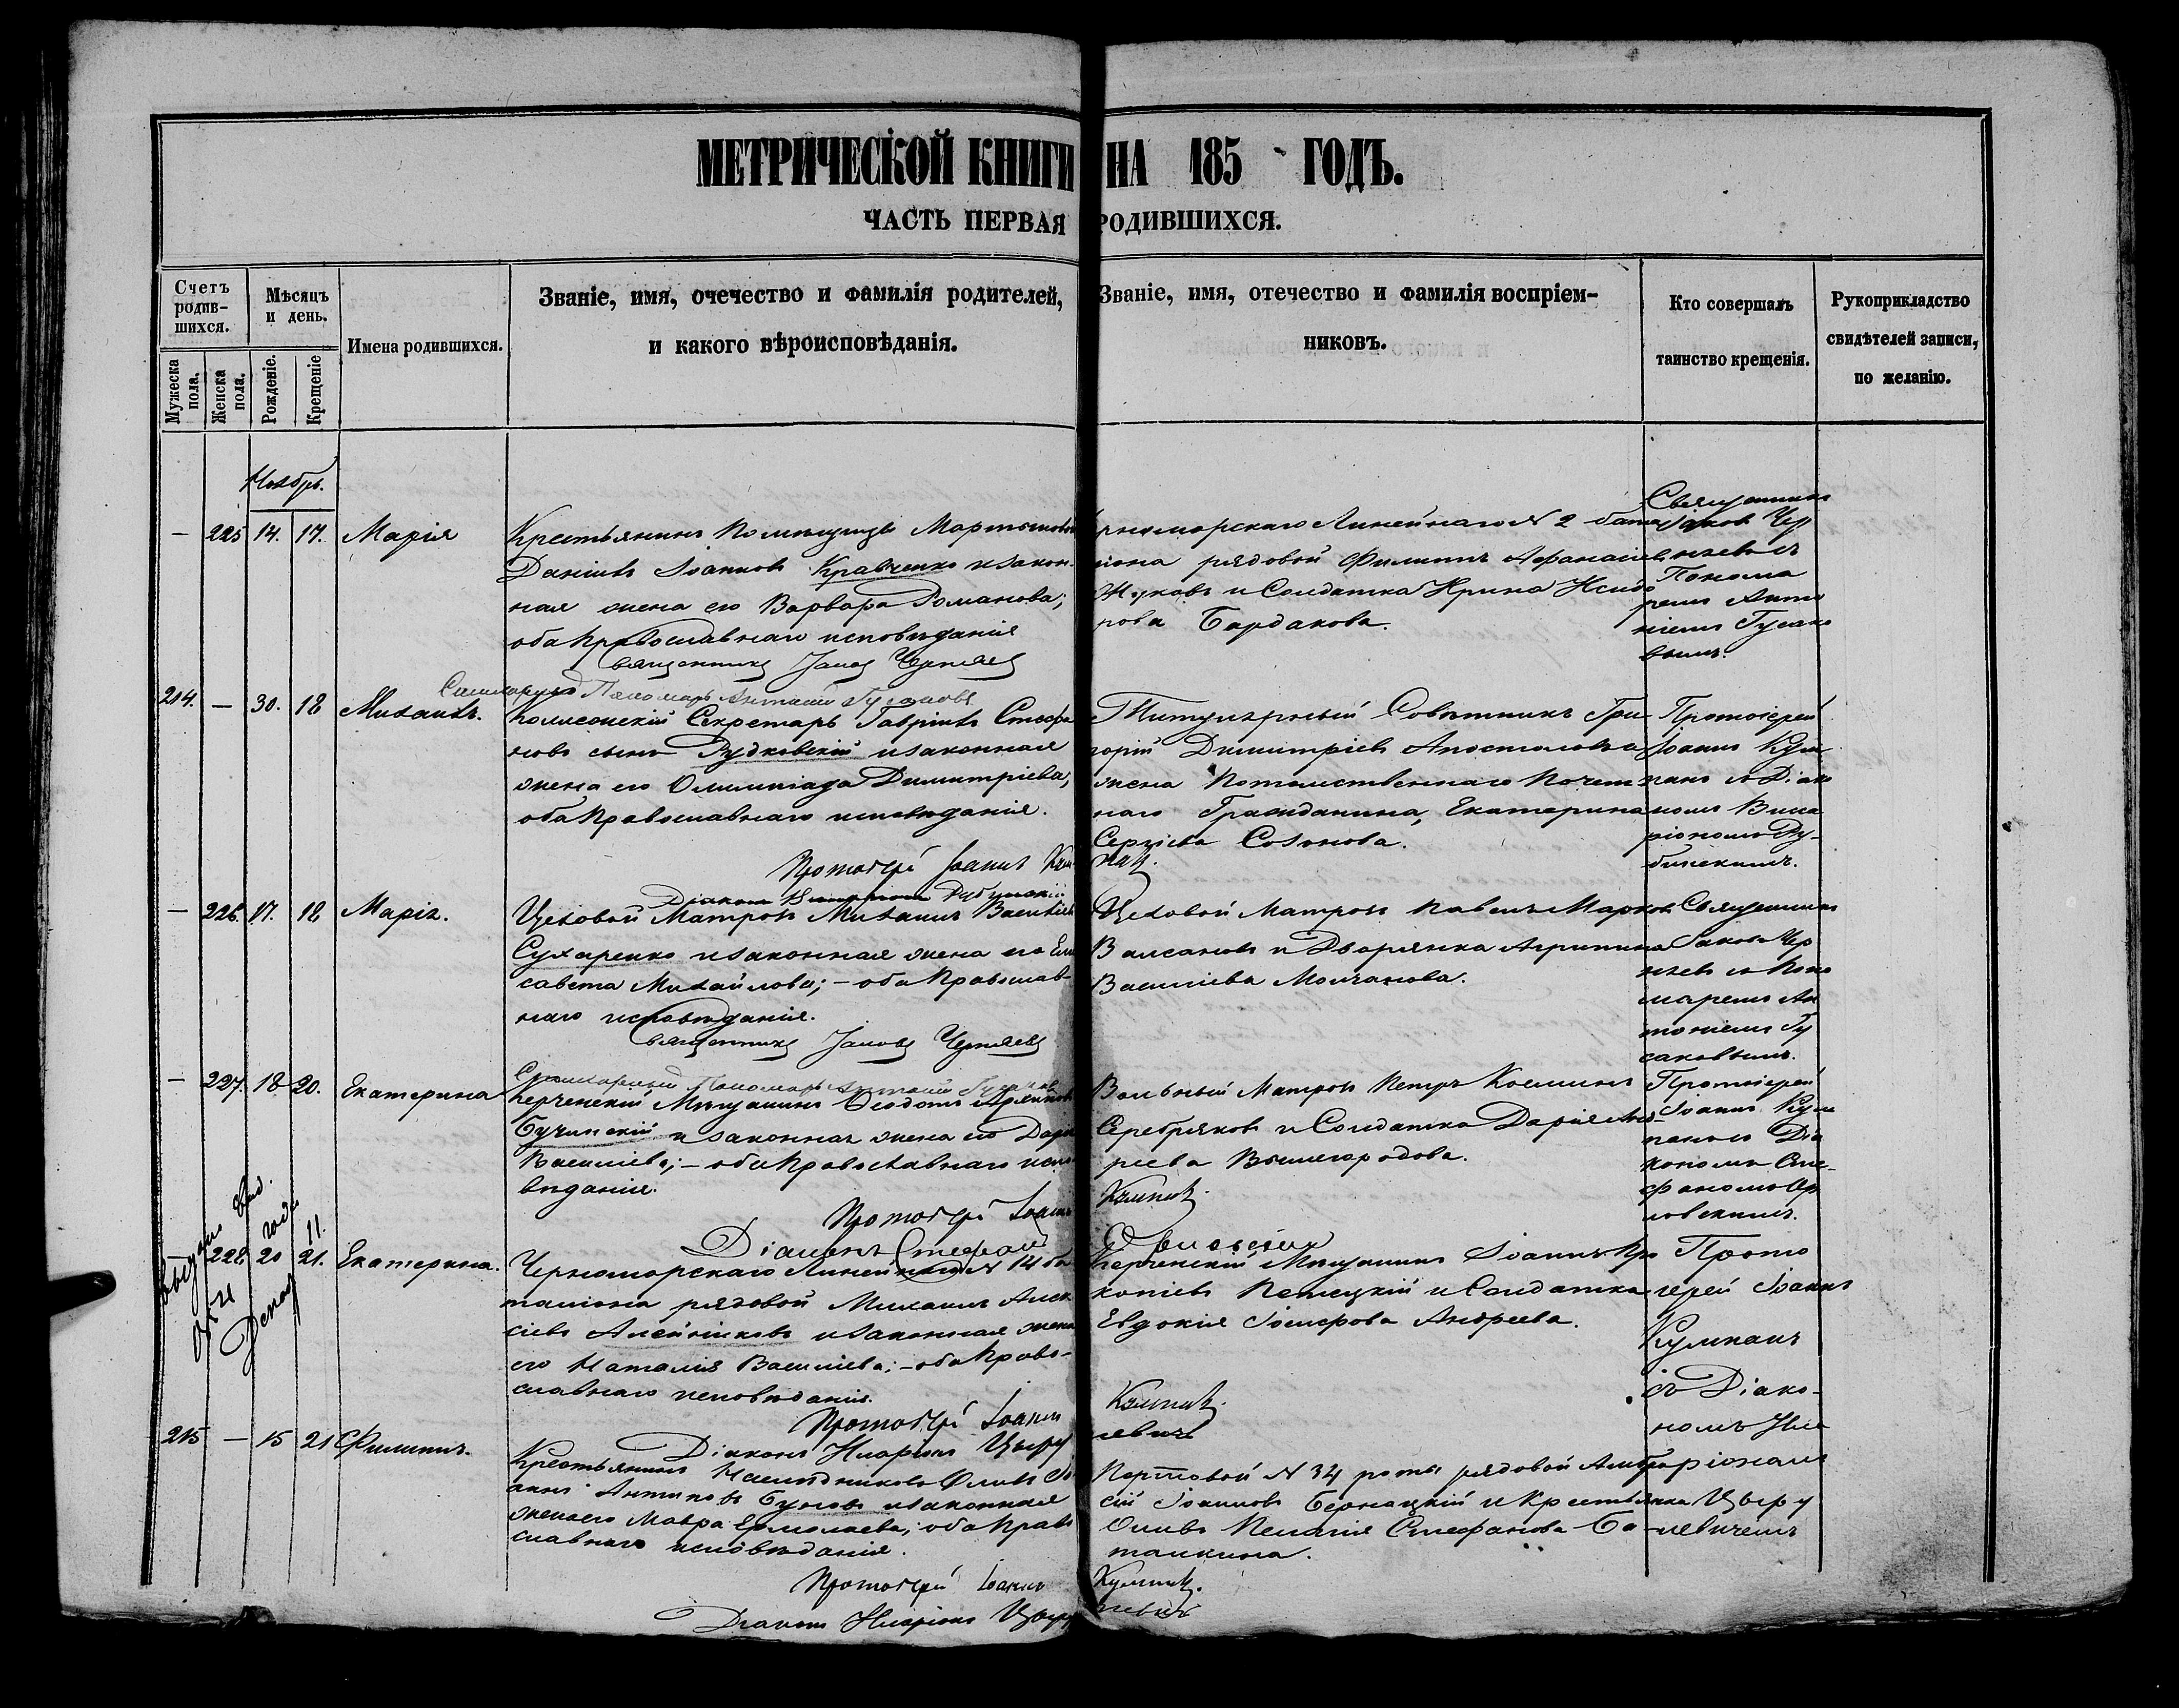 МЕТРИЧЕСКОЙ КНИГИ НА 185 ГОДЪ.
ЧАСТЬ ПЕРВАЯ РОДИВШИХСЯ.
Счетъ родив-шихся.
Мужеска пола.
Женска пола.
Мѣсяцъ и день.
Рожденіе.
Крещеніе
Имена родившихся.
Званіе, имя, очечество и фамилія родителей,
и какого вѣроисповѣданія.
Званіе, имя, отечество и фамилія воспріем-
никовъ.
Кто совершалъ
таинство крещенія.
Рукоприкладство
свидѣтелей записи,
по желанію.
Ноябрь.
— 225 14. 17. Марія
Крестьянинъ Помѣщицы
Даніилъ Іоанновъ Кравченко и закон-
ная жена его Варвара Романова;
оба Православнаго исповѣданія
Священникъ Іаковъ Черняевъ
Пономарь Антоній Гусаковъ
рноморскаго Линейнаго № 2 бата
ліона рядовой Филиппъ Афанасіевъ
Жуковъ и Солдатка Ирина Исидо
рова Бардакова.
Священникъ
Іаковъ Чер
няевъ съ
Понома
ремъ Анто
ніемъ Гусако
вымъ.
214. — 30. 18 Михаилъ.
Коллежскій Секретарь Гавріилъ Стефа
новъ сынъ Рудковскій и законная
жена его Олимпіада Димитріева,
оба Православнаго исповѣданія.
Протоіерей Іоаннъ Кум
пан.
Титулярный Совѣтникъ Гри
горій Димитріевъ Апостоловъ и
жена Потомственнаго Почет
наго Гражданина, Екатерина
Сергіева Созонова.
Протоіерей
Іоаннъ Кум
панъ съ Діако
номъ
— 226. 17. 18 Марія.
Цеховой Матрозъ Михаилъ Васильевъ
Сухаренко и законная жена его Ели
савета Михайлова; — оба Православ-
наго исповѣданія.
Священникъ Іаковъ Черняевъ
Пономарь Антоній Гусаковъ
Цеховой Матрозъ Павелъ Марковъ
Валсановъ и Дворянка Агрипина
Васильева Молчанова.
Священникъ
Іаковъ Чер
няевъ съ Поно
маремъ Ан
тоніемъ Гу
саковымъ.
— 227. 18 20. Екатерина
Керченскій Мѣщанинъ Ѳеодотъ
Бучинскій и законная жена его Дарія
Васильева; — оба Православнаго испо
вѣданія.
Протоіерей Іоаннъ
Кумпан.
Діаконъ Стефанъ Орловскій
Вольный Матрозъ Петръ Косминъ
Серебряковъ и Солдатка Дарія Анд-
реева Вышегородова.
Протоіерей
Іоаннъ Кум
панъ съ Діа
кономъ Сте-
фаномъ Ор
ловскимъ.
228. 20 21. Екатерина.
Черноморскаго Линейнаго № 14 ба
таліона рядовой Михаилъ Алек
сіевъ Алейниковъ и законная жена
его Наталія Васильева; — оба Право-
славнаго исповѣданія.
Протоіерей Іоаннъ
Кумпан.
Діаконъ Иларіонъ Цыру
левичъ
Керченскій Мѣщанинъ Іоаннъ Про
копіевъ Пелецкій и Солдатка
Евдокія Іосифова Андреева.
Прото
іерей Іоаннъ
Кумпанъ
съ Діако-
номъ Ила
ріономъ
Цыру
левичемъ
215 — 15 21 Филиппъ.
Крестьянинъ Наслѣдниковъ Оливъ Іо
аннъ Антиповъ Буновъ и законная
жена его Мавра Ермолаева; оба Право
славнаго исповѣданія.
Протоіерей Іоаннъ
Кумпан.
Діаконъ Иларіонъ Цыру
левичъ
Портовой № 34 роты рядовой Амвро
сій Іоанновъ Бернацкій и Крестьянка
Оливъ Пелагія Стефанова Ба
талкина.